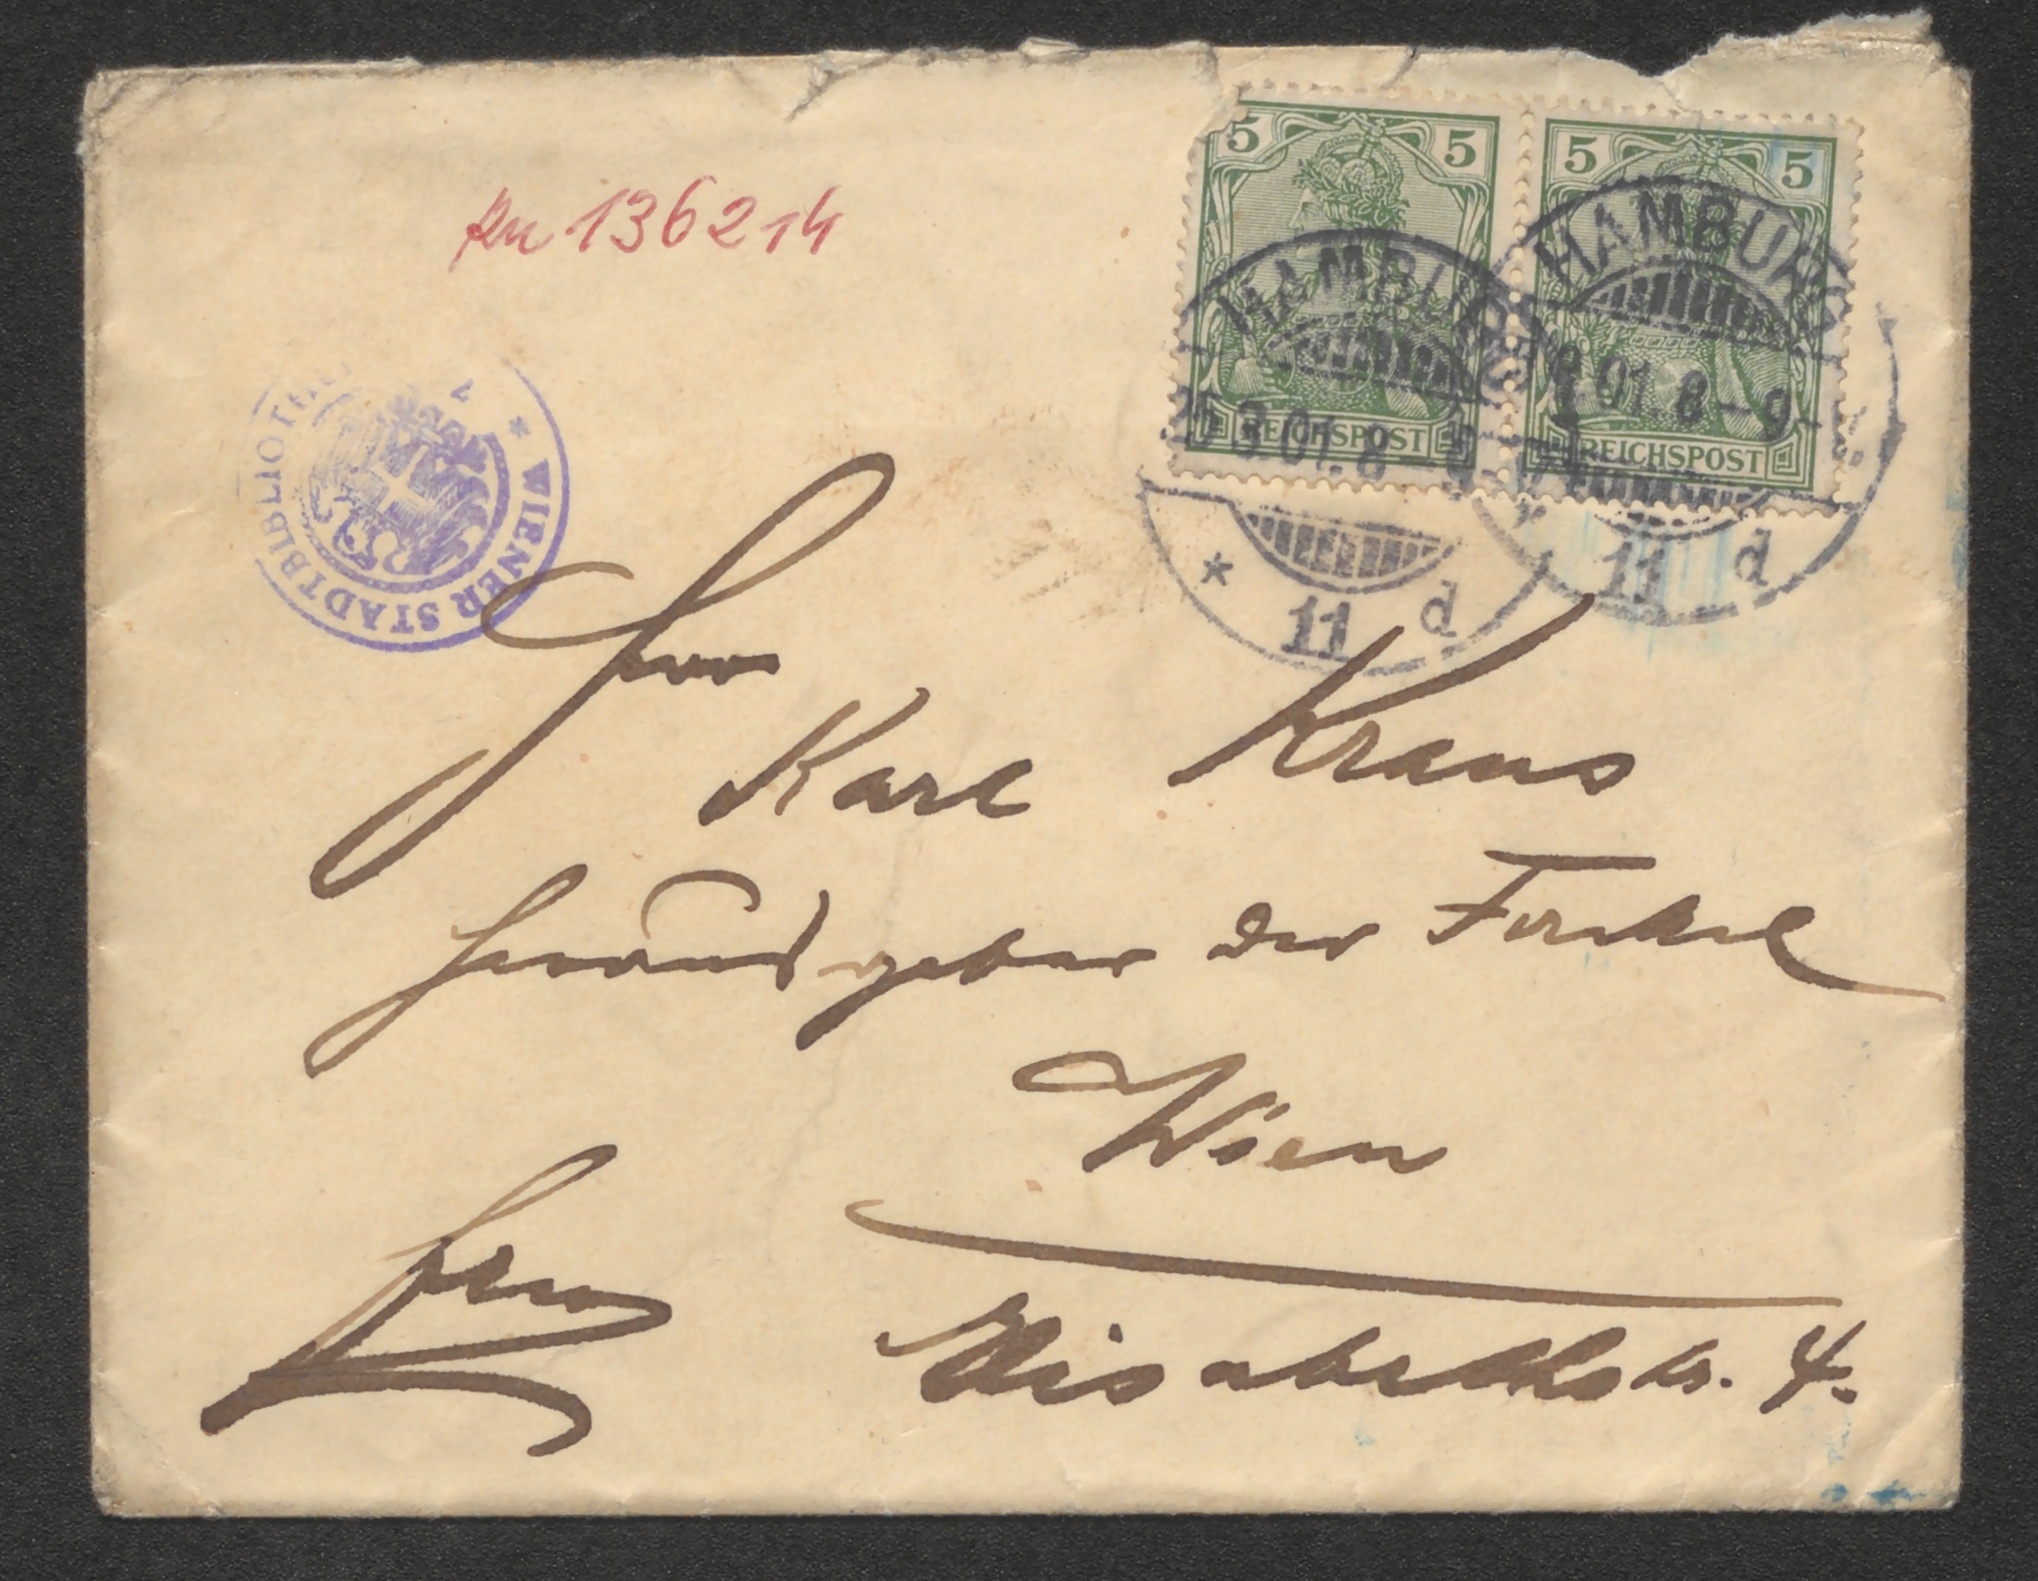 5 5 5 5
HAMBURG HAMBURG
3.01.8- 01.8-9
REICHSPOST REICHSPOST
* 11 d 11 d
Jn 136214
WIENER STADTBIBLIOTHEK *
Herr
Karl Kraus
Herausgeber der Fackel
Wien
Elisabethstr. 4.